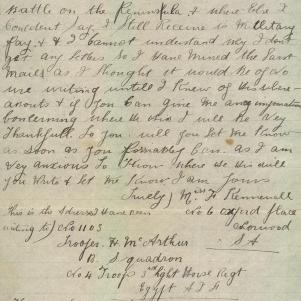 battle on the Peninsula & where else I
Concident Say I Still Receive is Military
Pay & & I Cannot understand why I dont
get any letters So I have missed the Last
Mails as I thought it would be of no
use writing untill I Knew of his where-
abouts & if you Can give me any information
concerning where he is I will be Very
Thankfull So you will you let me Know
as soon as you Can. as I am
Vey anxious to Know where he is will
you Write & let me Know I am yours
Truely Miss F
This is the adress I have been No 6 oxford place
writing to) No 1103 Norwood
Trooper H. McArthur S A
B. Squadron
No 4 Troop 3rd Light Horse Regt
Egypt A I F